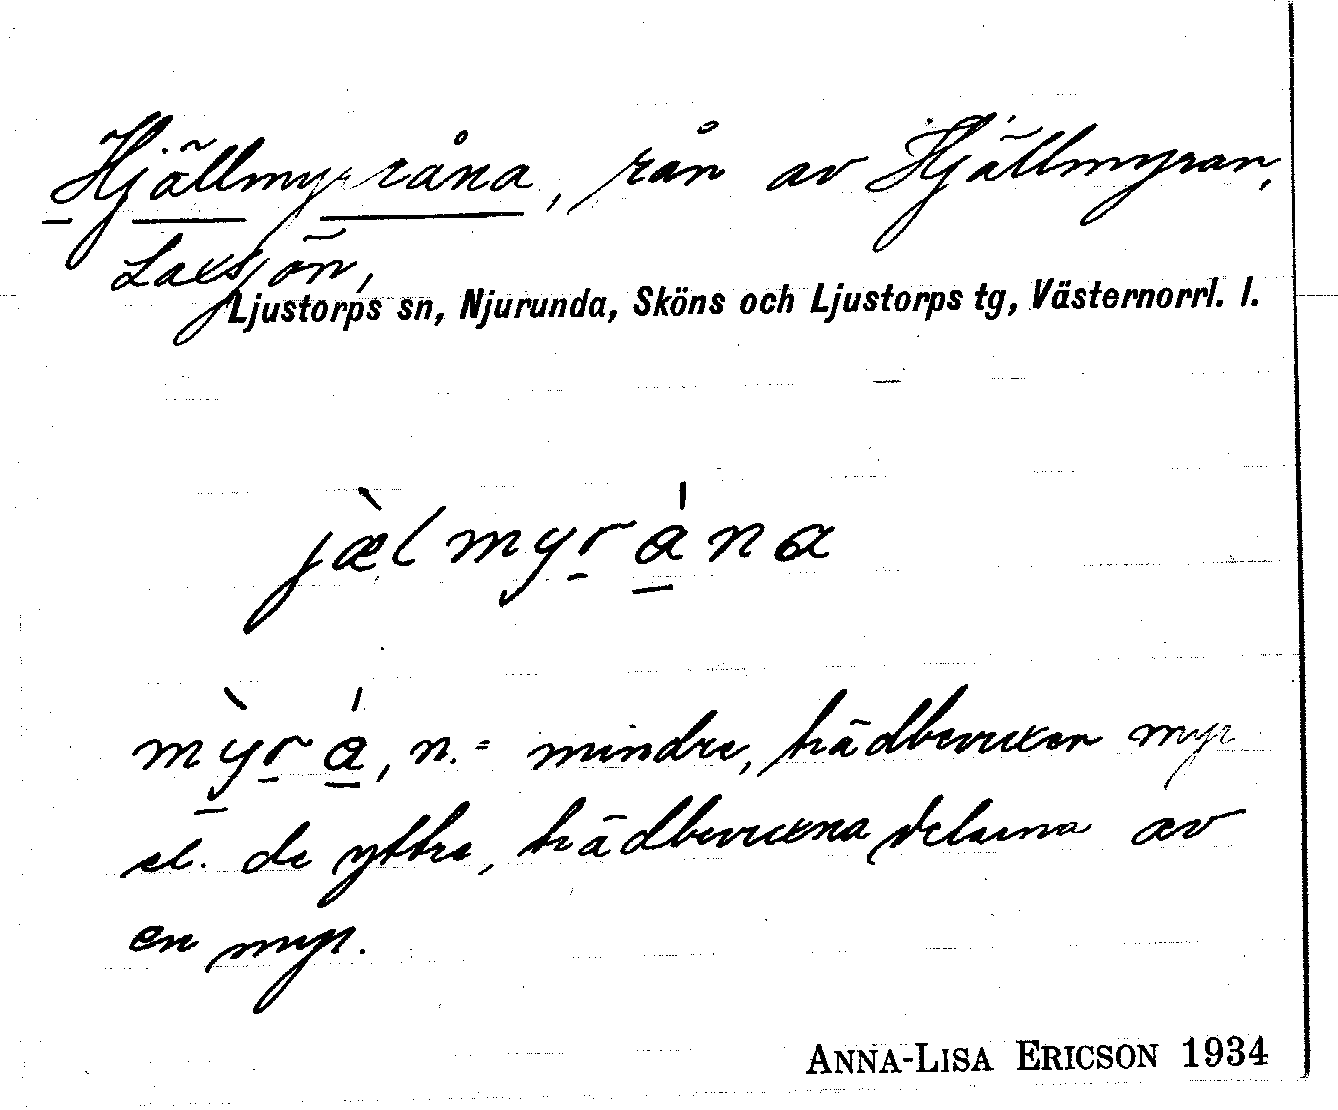 Hjällmyråna, rån av Hjällmyran,
Laxsjön,
Ljustorps sn, Njurunda, Sköns och Ljustorps tg, Västernorrl. l.
jæ̀lmyr̲a̲̍na
mỳ̲r̲a̲̍, n. = mindre, trädbevuxen myr
el. de yttre, trädbevuxna delarna av
en myr.
ANNA-LISA ERICSON 1934